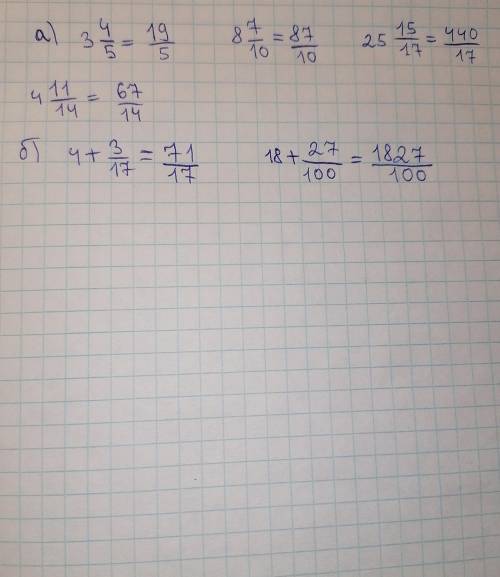 а) 3 4/5 = 19/5 8 7/10 = 87/10 25 15/17 = 440/17
4 11/14 = 67/14
б) 4 + 3/17 = 71/17 18 + 27/100 = 1827/100